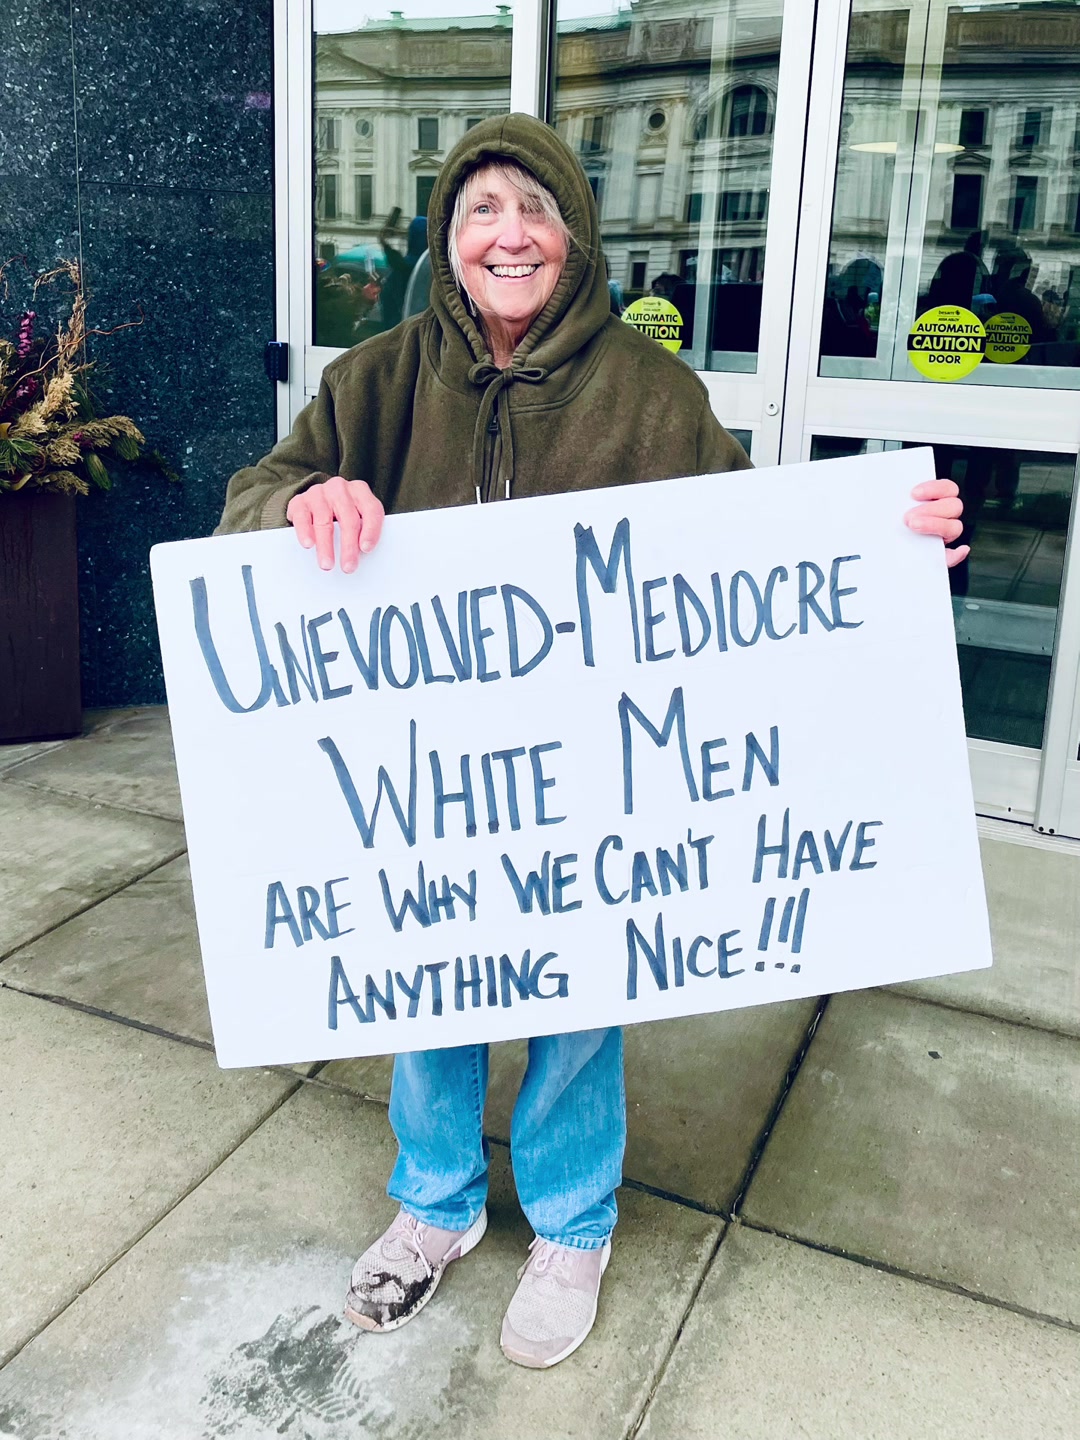 UNEVOLVED-MEDIOCRE
WHITE MEN
ARE WHY WE CAN'T HAVE
ANYTHING NICE!!!
AUTOMATIC
CAUTION
AUTOMATIC
CAUTION
DOOR
AUTOMATIC
CAUTION
DOOR